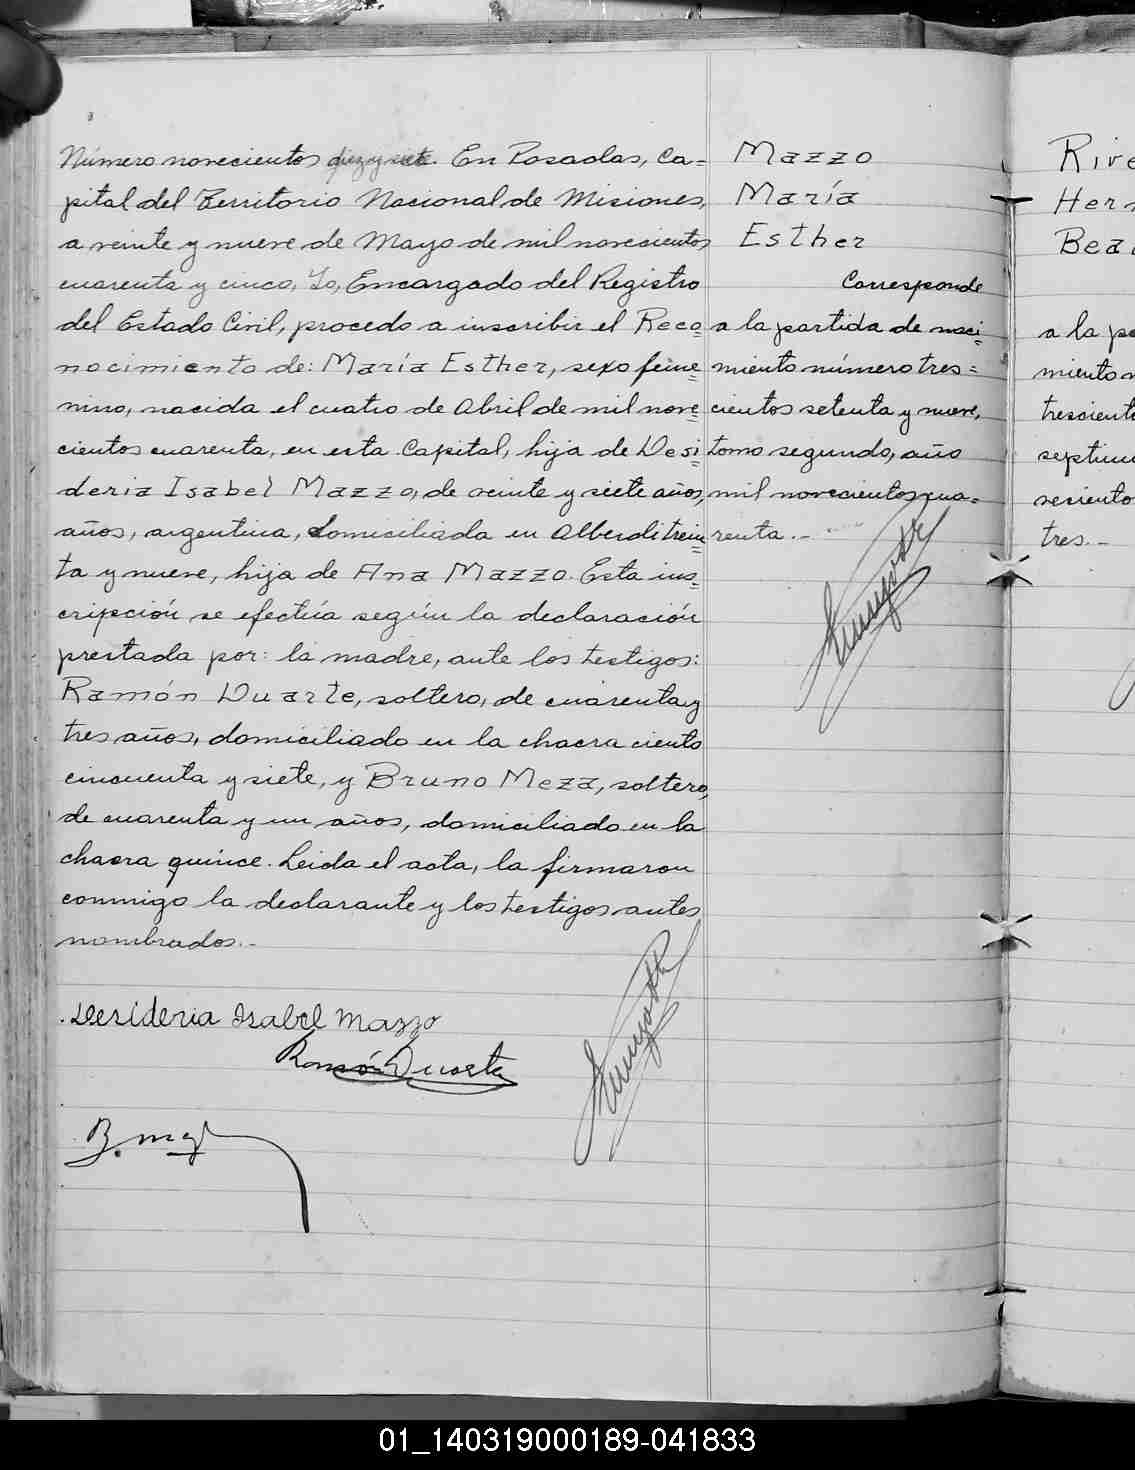 Número novecientos diez y siete. En Posadas, Ca=
pital del Territorio Nacional de Misiones,
a veinte y nueve de Mayo de mil novecientos
cuarenta y cinco, Yo, Encargado del Registro
del Estado Civil, procedo a inscribir el Reco=
nocimiento de: María Esther, sexo feme=
nino, nacida el cuatro de Abril de mil nove=
cientos cuarenta, en esta Capital, hija de Desi=
deria Isabel Mazzo, de veinte y siete años,
años, argentina, domiciliada en Alberdi trein=
ta y nueve, hija de Ana Mazzo. Esta ins=
cripción se efectúa según la declaración
prestada por: la madre, ante los testigos:
Ramón Duarte, soltero, de cuarenta y
tres años, domiciliado en la chacra ciento
cincuenta y siete, y Bruno Meza, soltero,
de cuarenta y un años, domiciliado en la
chacra quince. Leida el acta, la firmaron
conmigo la declarante y los testigos antes
nombrados.-
Desideria Isabel Mazzo
Ramón Duarte
Mazzo
María
Esther
Corresponde
a la partida de naci=
miento número tres=
cientos setenta y nueve,
tomo segundo, año
mil novecientos cua=
renta.-
Rive
Her
Bea
a la pa
miento n
trescient
septim
veciento
tres.-
01_140319000189-041833